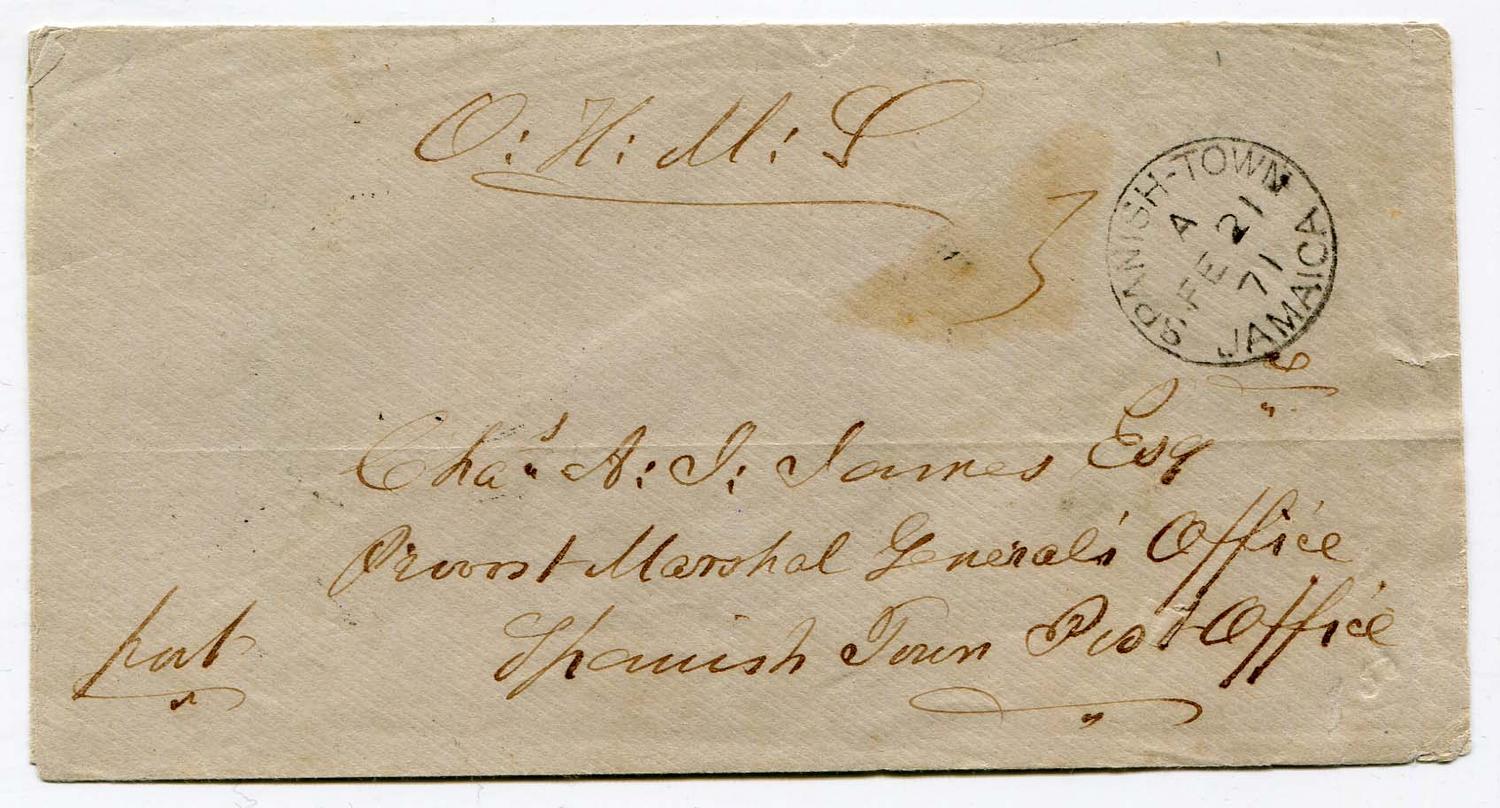 O: H: M: S
3
SPANISH-TOWN
A
FE 21
71
JAMAICA
Chas A: J: James Esq
Provost Marshal General's Office
Spanish Town Post Office